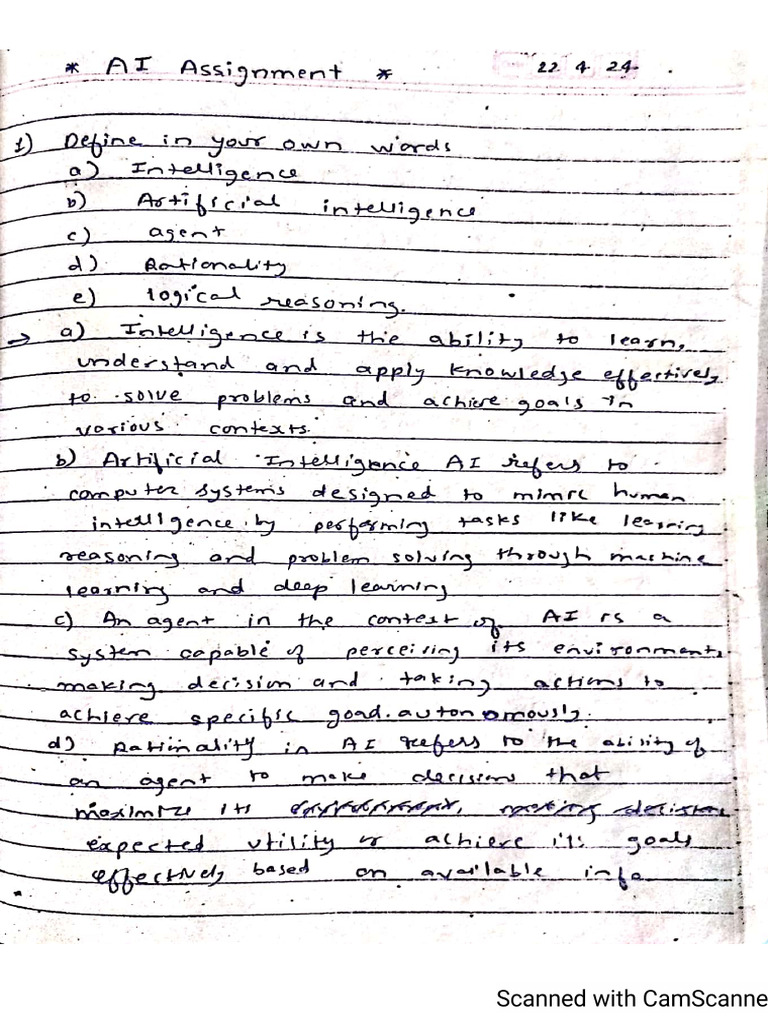 * AI Assignment *
22 4 24
1) Define in your own words
a) Intelligence
b) Artificial intelligence
c) agent
d) Rationality
e) logical reasoning.
→ a) Intelligence is the ability to learn,
understand and apply knowledge effectively
to solve problems and achieve goals in
various contexts.
b) Artificial Intelligence AI refers to
computer systems designed to mimic human
intelligence by performing tasks like learning
reasoning and problem solving through machine
learning and deep learning
c) An agent in the context of AI is a
system capable of perceiving its environment,
making decision and taking actions to
achieve specific goad autonomously.
d) Rationality in AI refers to the ability of
an agent to make decisions that
maximize its
expected utility or achieve its goals
effectively based on available info
Scanned with CamScanne